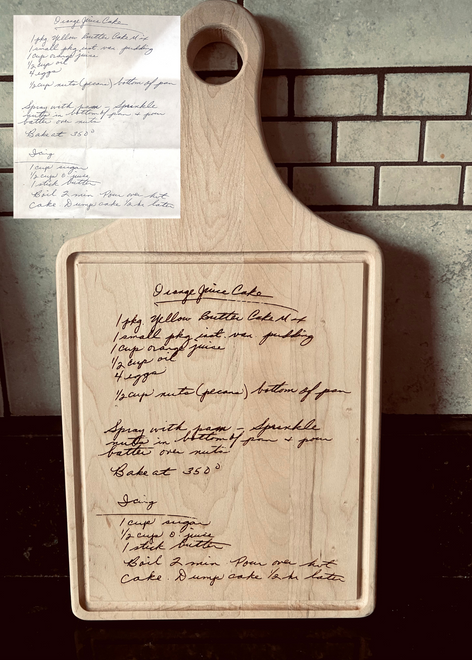 Orange Juice Cake
1 pkg Yellow Butter Cake Mix
1 small pkg inst. van pudding
1 cup orange juice
1/2 cup oil
4 eggs
1/2 cup nuts (pecans) bottom of pan
Spray with pam - Sprinkle
nuts in bottom of pan & pour
batter over nuts
Bake at 350°
Icing
1 cup sugar
1/2 cup O. juice
1 stick butter
Boil 2 min Pour over hot
cake. Dump cake 1/2 hr later
Orange Juice Cake
1 pkg Yellow Butter Cake Mix
1 small pkg inst. van pudding
1 cup orange juice
1/2 cup oil
4 eggs
1/2 cup nuts (pecans) bottom of pan
Spray with pam - Sprinkle
nuts in bottom of pan & pour
batter over nuts
Bake at 350°
Icing
1 cup sugar
1/2 cup O. juice
1 stick butter
Boil 2 min Pour over hot
cake. Dump cake 1/2 hr later